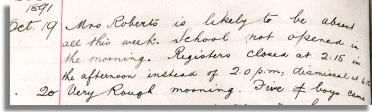 1891
Oct. 19 Mrs Roberts is likely to be absent
all this week. School not opened in
the morning. Registers closed at 2.15 in
the afternoon instead of 2.0 p.m, dismissal at
" 20 Very Rough morning. Five boys came